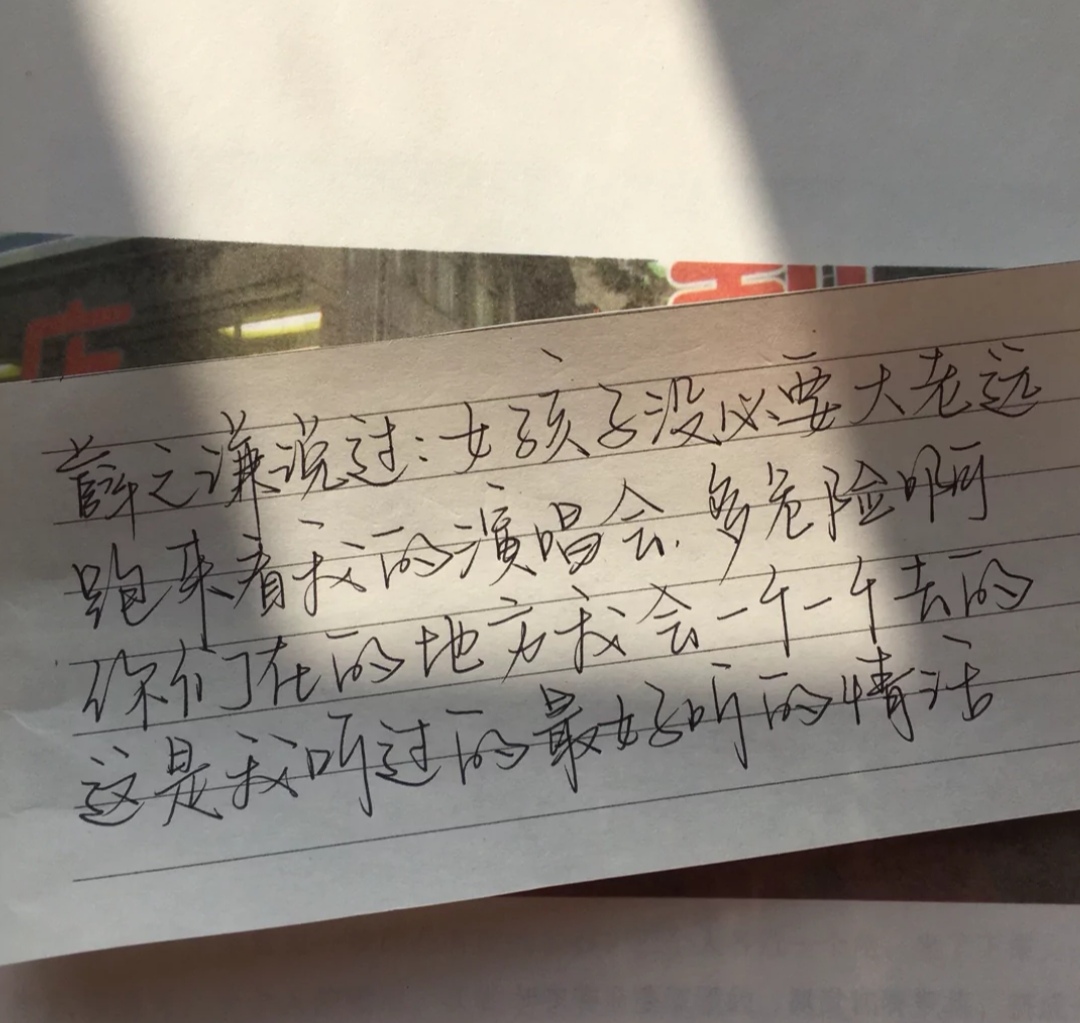 薛之谦说过：女孩子没必要大老远
跑来看我的演唱会.多危险啊
你们在的地方我会一个一个去的
这是我听过的最好听的情话